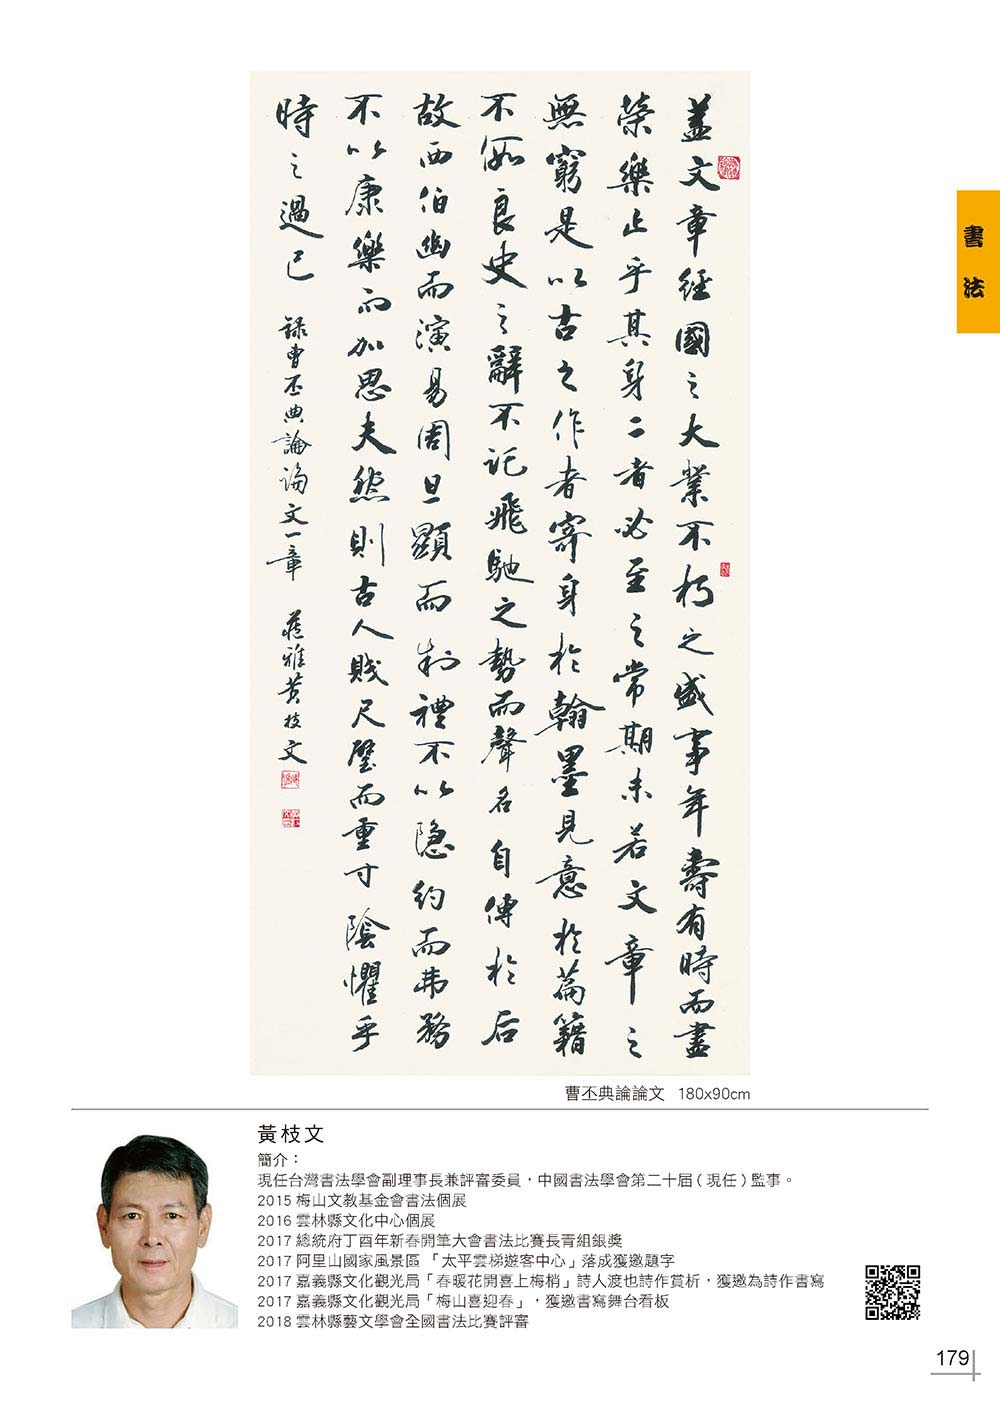 蓋文章經國之大業不朽之盛事年壽有時而盡
榮樂止乎其身二者必至之常期未若文章之
無窮是以古之作者寄身於翰墨見意於篇籍
不假良史之辭不託飛馳之勢而聲名自傳於后
故西伯幽而演易周旦顯而制禮不以隐約而弗務
不以康樂而加思夫然則古人賤尺璧而重寸陰懼乎
時之過已 錄曹丕典論論文一章 雅黃枝文
書法
曹丕典論論文 180x90cm
黃枝文
簡介：
現任台灣書法學會副理事長兼評審委員，中國書法學會第二十屆（現任）監事。
2015 梅山文教基金會書法個展
2016 雲林縣文化中心個展
2017 總統府丁酉年新春開筆大會書法比賽長青組銀獎
2017 阿里山國家風景區 「太平雲梯遊客中心」落成獲邀題字
2017 嘉義縣文化觀光局「春暖花開喜上梅梢」詩人渡也詩作賞析，獲邀為詩作書寫
2017 嘉義縣文化觀光局「梅山喜迎春」，獲邀書寫舞台看板
2018 雲林縣藝文學會全國書法比賽評審
179